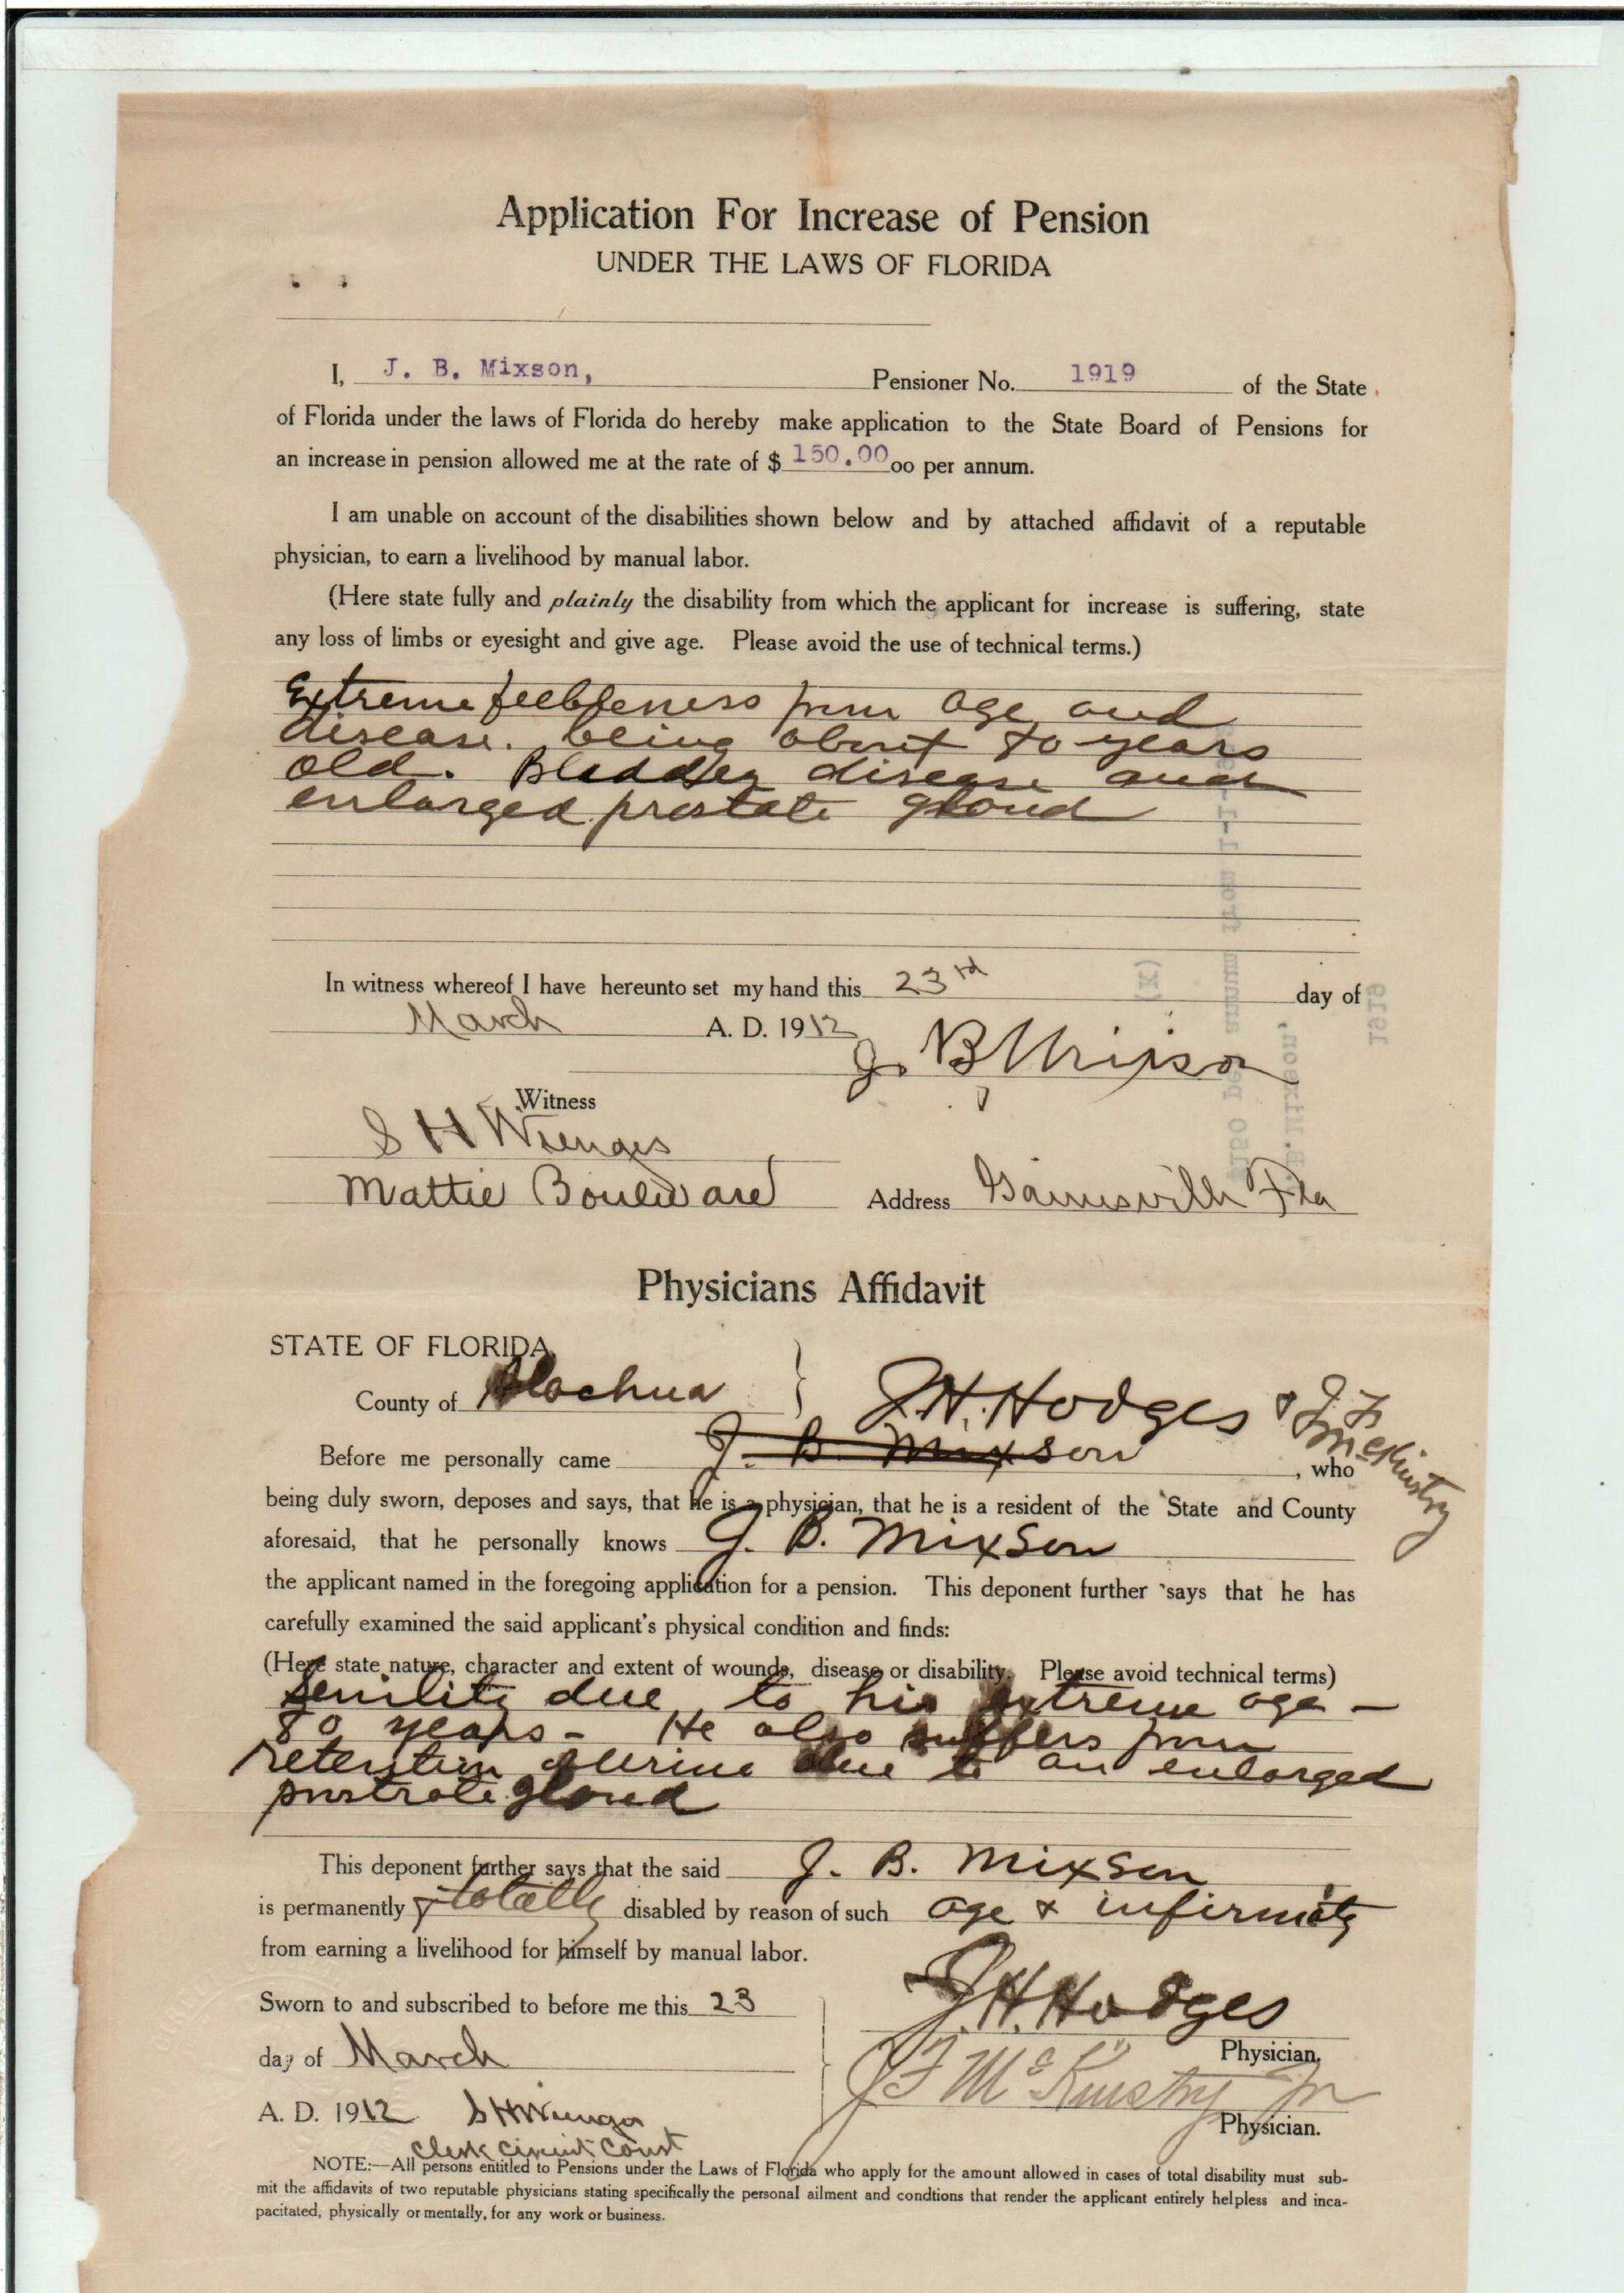 Application For Increase of Pension
UNDER THE LAWS OF FLORIDA
I, J. B. Mixson, Pensioner No. 1919 of the State
of Florida under the laws of Florida do hereby make application to the State Board of Pensions for
an increase in pension allowed me at the rate of $ 150.00 oo per annum.
I am unable on account of the disabilities shown below and by attached affidavit of a reputable
physician, to earn a livelihood by manual labor.
(Here state fully and plainly the disability from which the applicant for increase is suffering, state
any loss of limbs or eyesight and give age. Please avoid the use of technical terms.)
Extreme feebleness from age and
disease. being about 80 years
old. Bladder disease and
enlarged prostate gland
In witness whereof I have hereunto set my hand this 23rd day of
March A. D. 1912
J. B Mixson
Witness
S H Wienges
Mattie Bouleware Address Gainesville Fla
Physicians Affidavit
STATE OF FLORIDA
County of Alachua } J. H. Hodges & J F McKinstry
Before me personally came J. B. Mixson, who
being duly sworn, deposes and says, that he is a physician, that he is a resident of the State and County
aforesaid, that he personally knows J. B. Mixson
the applicant named in the foregoing application for a pension. This deponent further says that he has
carefully examined the said applicant's physical condition and finds:
(Here state nature, character and extent of wounds, disease or disability. Please avoid technical terms)
Senility due to his extreme age -
80 years - He also suffers from
retention of urine due to an enlarged
prostrate gland
This deponent further says that the said J. B. Mixson
is permanently & totally disabled by reason of such age & infirmity
from earning a livelihood for himself by manual labor.
Sworn to and subscribed to before me this 23
day of March
A. D. 1912 S H Wienges
Clerk Circuit Court
J. H. Hodges
Physician.
J F McKinstry Jr
Physician.
NOTE:—All persons entitled to Pensions under the Laws of Florida who apply for the amount allowed in cases of total disability must sub-
mit the affidavits of two reputable physicians stating specifically the personal ailment and condtions that render the applicant entirely helpless and inca-
pacitated, physically or mentally, for any work or business.